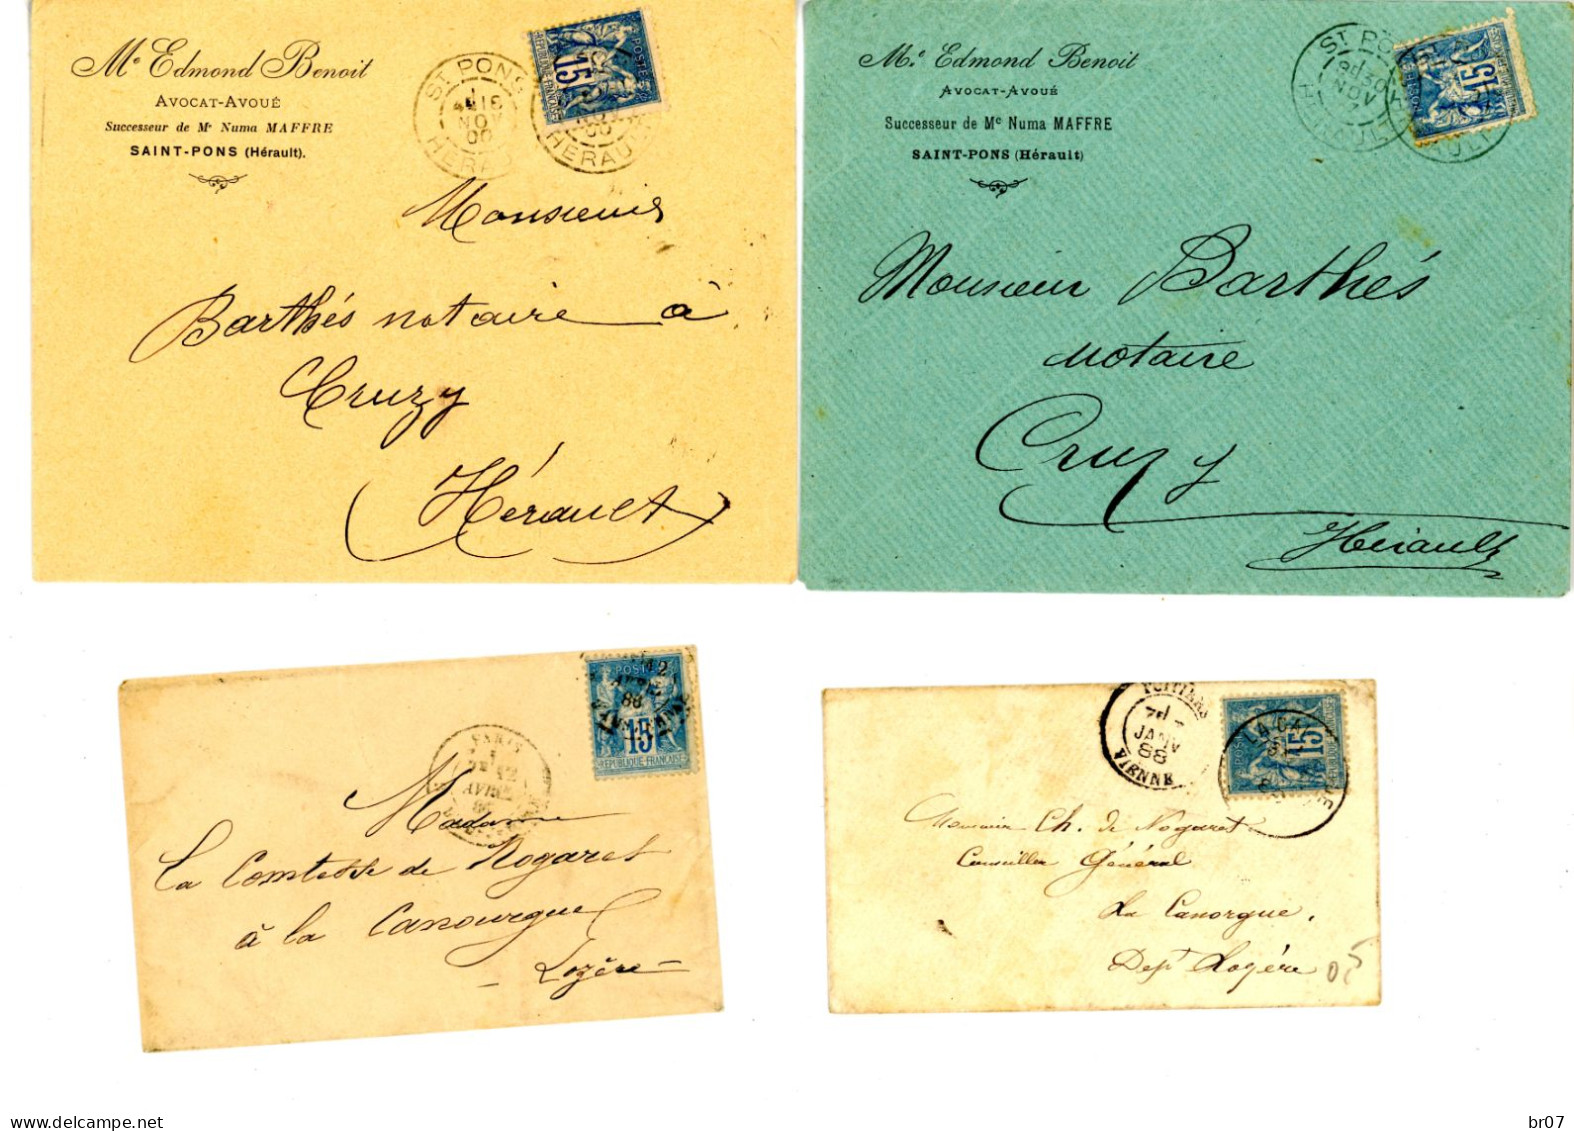 Me Edmond Benoit
AVOCAT-AVOUÉ
Successeur de Me Numa MAFFRE
SAINT-PONS (Hérault).
ST PONS
NOV
00
HERAULT
POSTES
15
REPUBLIQUE FRANÇAISE
Monsieur
Barthés notaire à
Cruzy
Hérault
Me Edmond Benoit
AVOCAT-AVOUÉ
Successeur de Me Numa MAFFRE
SAINT-PONS (Hérault)
ST PONS
NOV
HERAULT
15
Monsieur Barthés
notaire
Cruzy
Hérault
PARIS
12
AVRIL
POSTES
15
REPUBLIQUE FRANÇAISE
Madame
La Comtesse de Nogaret
à la Canourgue
Lozère
POITIERS
JANV
88
VIENNE
15
Monsieur Ch. de Nogaret
Conseiller Général
La Canorgue.
Dept Lozère
delcampe.net
br07